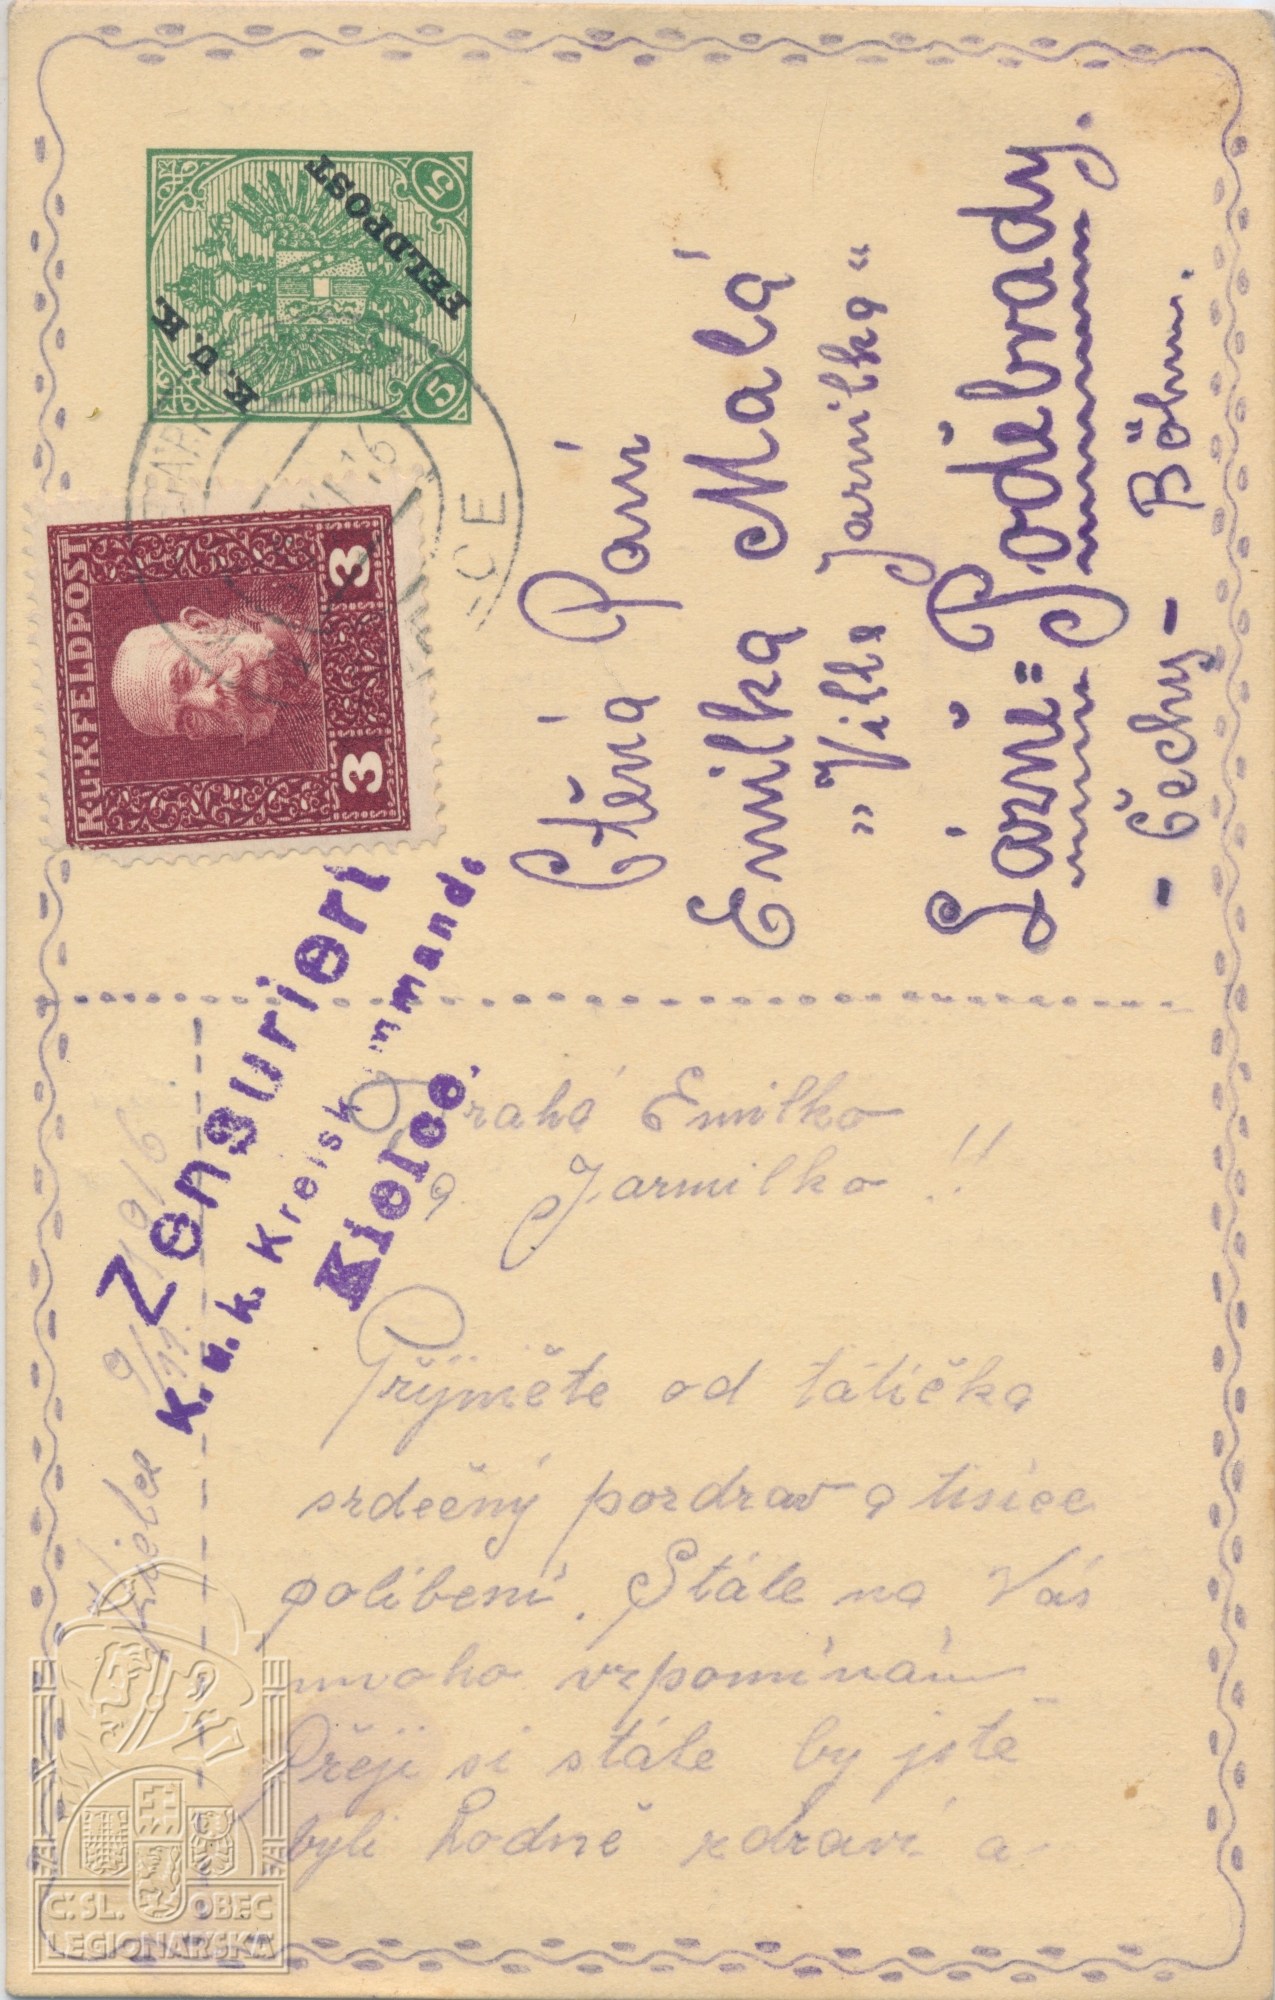 K. U. K.
FELDPOST
5
5
K.u.K. FELDPOST
3
3
Ctěná Paní
Emilka Malá
„Villa Jarmilka“
Lázně= Poděbrady.
- Čechy - Böhm.
Zensuriert
K.u.k. Kreiskommando
Kielce.
9/11 1916.
Drahá Emilko
a Jarmilko!!
Přijměte od tátíčka
srdečný pozdrav a tisíce
políbení. Stále na Vás
mnoho vzpomínám
Přeji si stále by jste
byli hodně zdraví a
Č.SL. OBEC
LEGIONÁŘSKÁ